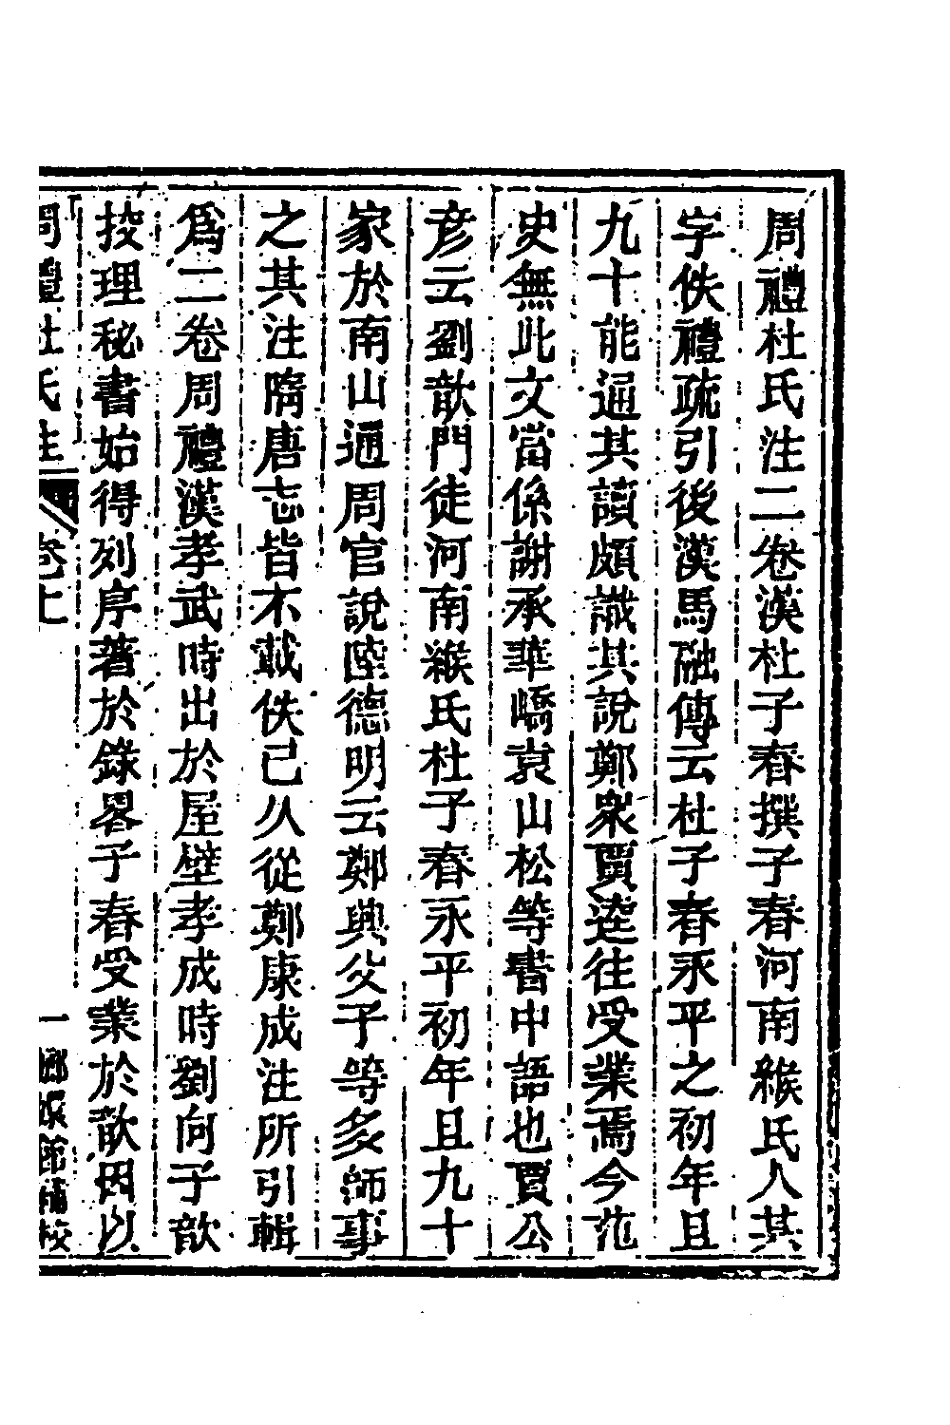 周禮杜氏注二卷漢杜子春撰子春河南緱氏人其
字佚禮疏引後漢馬融傳云杜子春永平之初年且
九十能通其讀頗識其說鄭衆賈逵往受業焉今范
史無此文當係謝承華嶠袁山松等書中語也賈公
彦云劉歆門徒河南緱氏杜子春永平初年且九十
家於南山通周官說陸德明云鄭興父子等多師事
之其注隋唐志皆不載佚已久從鄭康成注所引輯
爲二卷周禮漢孝武時出於屋壁孝成時劉向子歆
挍理秘書始得列序著於錄畧子春受業於歆因以
周禮杜氏注 卷上 一 嫏嬛館補校